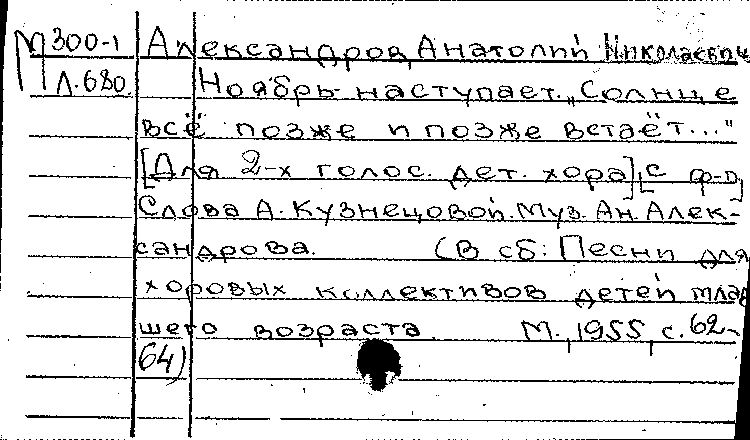 М300-1 Александров, Анатолий Николаевич
Л.680. Ноябрь наступает. „Солнце
всё позже и позже встаёт..."
[Для 2-х голос. дет. хора], [с ф-п]
Слова А. Кузнецовой. Муз. Ан. Алек-
сандрова. (В сб: Песни для
хоровых коллективов детей млад
шего возраста. М., 1955, с. 62-
64)